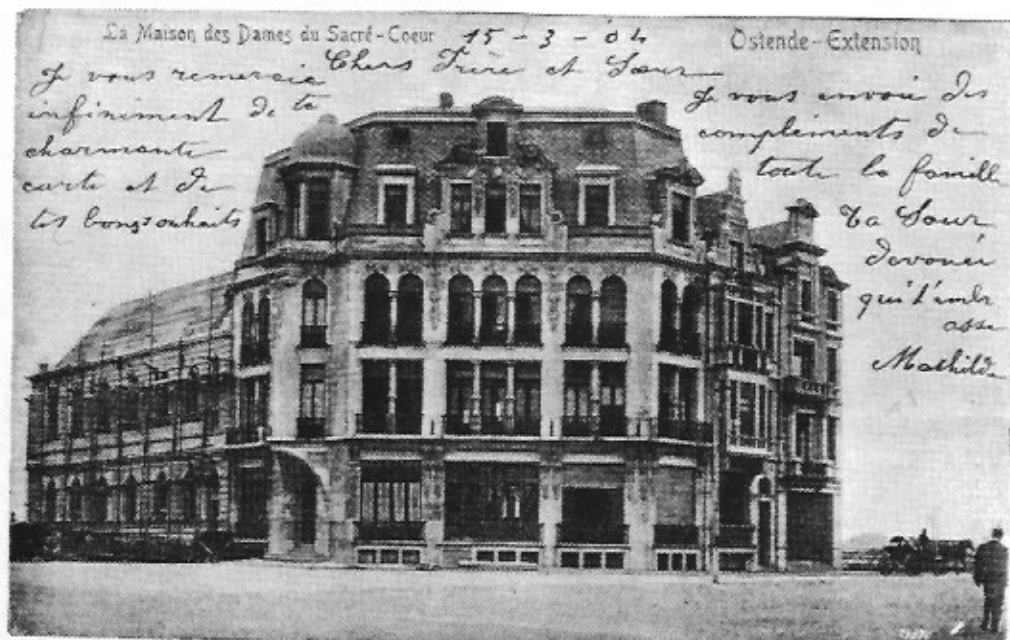 La Maison des Dames du Sacré-Coeur
15-3-04
Ostende-Extension
Chers Frère et Sœur
Je vous remercie
infiniment de ta
charmante
carte et de
tes bons souhaits
Je vous envoie des
compléments de
toute la famille
Ta Sœur
devouée
qui t'embr
asse
Mathilde